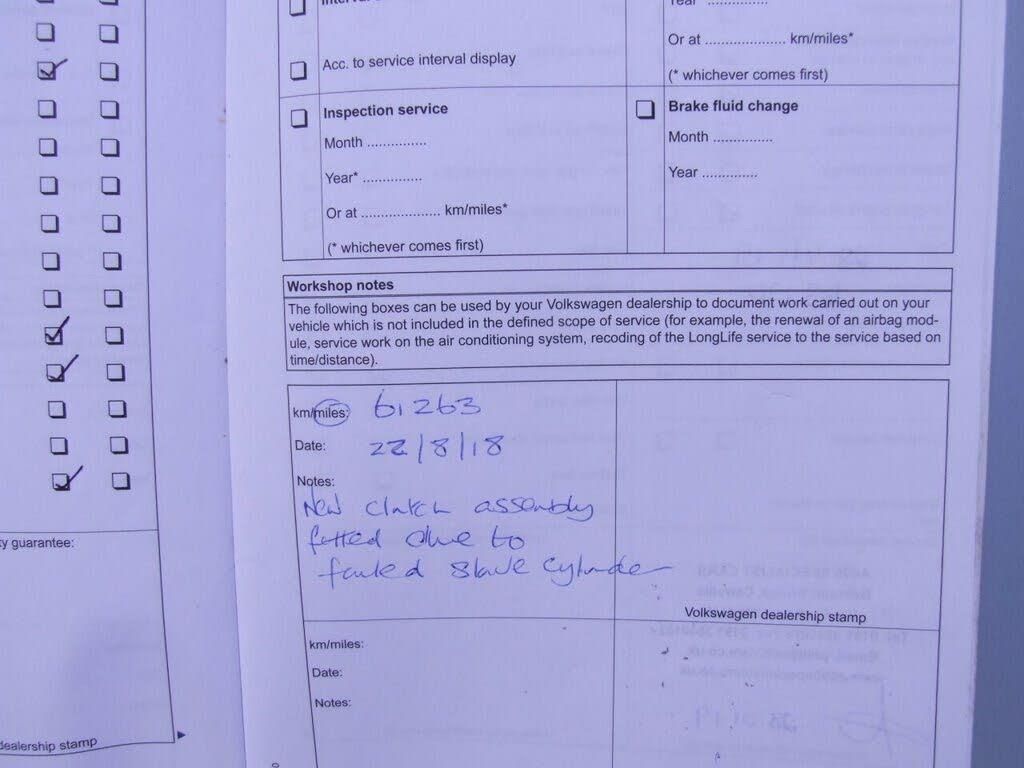 Acc. to service interval display
Year ...............
Or at .................... km/miles*
(* whichever comes first)
Inspection service
Month ...............
Year* ...............
Or at .................... km/miles*
(* whichever comes first)
Brake fluid change
Month ...............
Year ..............
Workshop notes
The following boxes can be used by your Volkswagen dealership to document work carried out on your
vehicle which is not included in the defined scope of service (for example, the renewal of an airbag mod-
ule, service work on the air conditioning system, recoding of the LongLife service to the service based on
time/distance).
km/miles: 61263
Date: 22/8/18
Notes:
New clutch assembly
fitted due to
failed slave cylinder
Volkswagen dealership stamp
km/miles:
Date:
Notes:
y guarantee:
dealership stamp